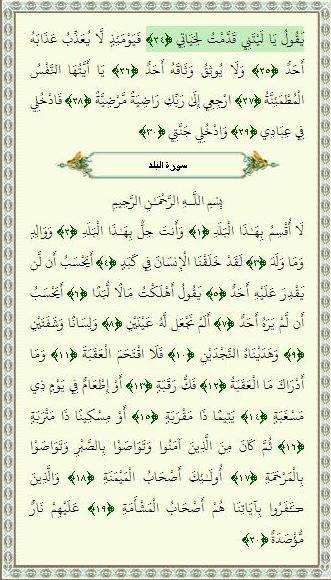 يَقُولُ يَا لَيْتَنِي قَدَّمْتُ لِحَيَاتِي ﴿٢٤﴾ فَيَوْمَئِذٍ لَّا يُعَذِّبُ عَذَابَهُ
أَحَدٌ ﴿٢٥﴾ وَلَا يُوثِقُ وَثَاقَهُ أَحَدٌ ﴿٢٦﴾ يَا أَيَّتُهَا النَّفْسُ
الْمُطْمَئِنَّةُ ﴿٢٧﴾ ارْجِعِي إِلَىٰ رَبِّكِ رَاضِيَةً مَّرْضِيَّةً ﴿٢٨﴾ فَادْخُلِي
فِي عِبَادِي ﴿٢٩﴾ وَادْخُلِي جَنَّتِي ﴿٣٠﴾
سورة البلد
بِسْمِ اللَّـهِ الرَّحْمَـٰنِ الرَّحِيمِ
لَا أُقْسِمُ بِهَـٰذَا الْبَلَدِ ﴿١﴾ وَأَنتَ حِلٌّ بِهَـٰذَا الْبَلَدِ ﴿٢﴾ وَوَالِدٍ
وَمَا وَلَدَ ﴿٣﴾ لَقَدْ خَلَقْنَا الْإِنسَانَ فِي كَبَدٍ ﴿٤﴾ أَيَحْسَبُ أَن لَّن
يَقْدِرَ عَلَيْهِ أَحَدٌ ﴿٥﴾ يَقُولُ أَهْلَكْتُ مَالًا لُّبَدًا ﴿٦﴾ أَيَحْسَبُ
أَن لَّمْ يَرَهُ أَحَدٌ ﴿٧﴾ أَلَمْ نَجْعَل لَّهُ عَيْنَيْنِ ﴿٨﴾ وَلِسَانًا وَشَفَتَيْنِ
﴿٩﴾ وَهَدَيْنَاهُ النَّجْدَيْنِ ﴿١٠﴾ فَلَا اقْتَحَمَ الْعَقَبَةَ ﴿١١﴾ وَمَا
أَدْرَاكَ مَا الْعَقَبَةُ ﴿١٢﴾ فَكُّ رَقَبَةٍ ﴿١٣﴾ أَوْ إِطْعَامٌ فِي يَوْمٍ ذِي
مَسْغَبَةٍ ﴿١٤﴾ يَتِيمًا ذَا مَقْرَبَةٍ ﴿١٥﴾ أَوْ مِسْكِينًا ذَا مَتْرَبَةٍ
﴿١٦﴾ ثُمَّ كَانَ مِنَ الَّذِينَ آمَنُوا وَتَوَاصَوْا بِالصَّبْرِ وَتَوَاصَوْا
بِالْمَرْحَمَةِ ﴿١٧﴾ أُولَـٰئِكَ أَصْحَابُ الْمَيْمَنَةِ ﴿١٨﴾ وَالَّذِينَ
كَفَرُوا بِآيَاتِنَا هُمْ أَصْحَابُ الْمَشْأَمَةِ ﴿١٩﴾ عَلَيْهِمْ نَارٌ
مُّؤْصَدَةٌ ﴿٢٠﴾